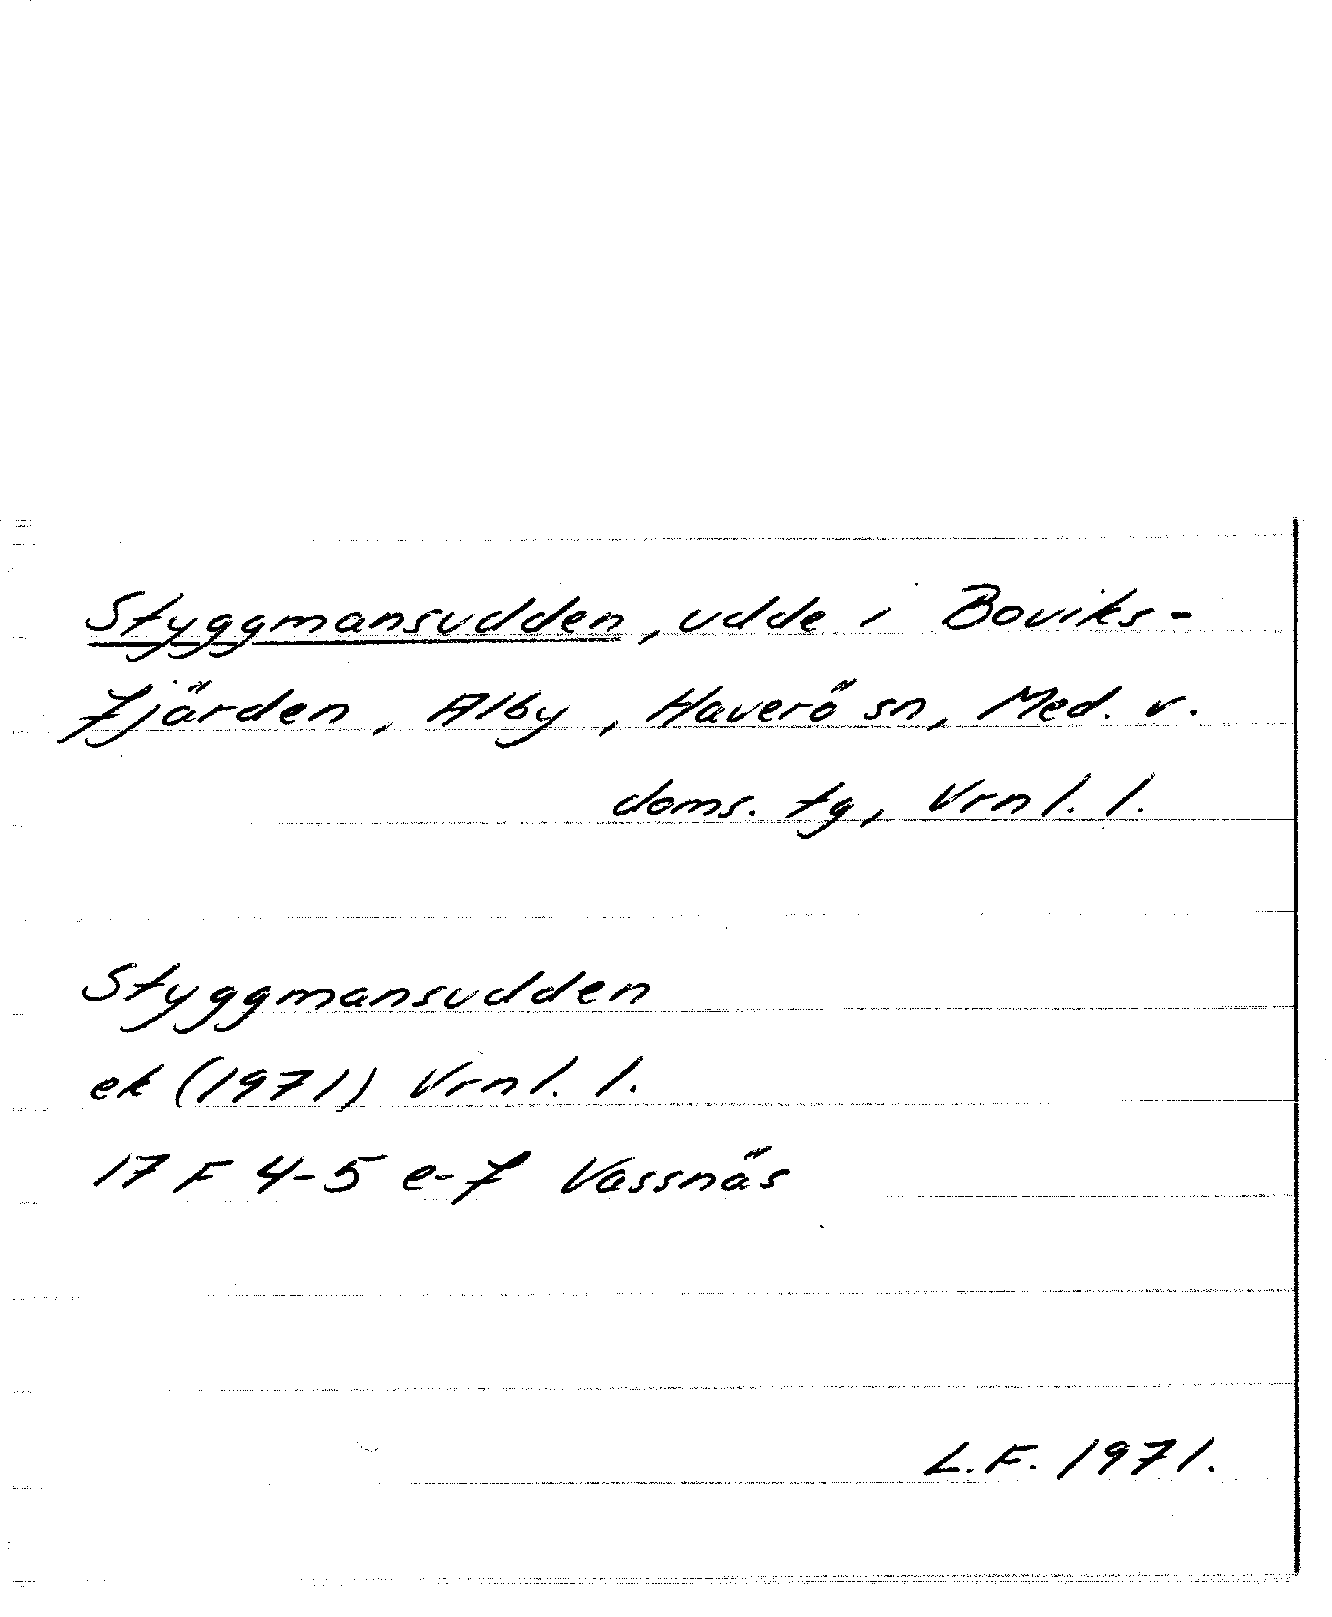 Styggmansudden, udde i Boviks-
fjärden, Alby, Haverö sn, Med. v.
doms. tg, Vrnl. l.
Styggmansudden
ek (1971) Vrnl. l.
17 F 4-5 e-f Vassnäs
L.F. 1971.